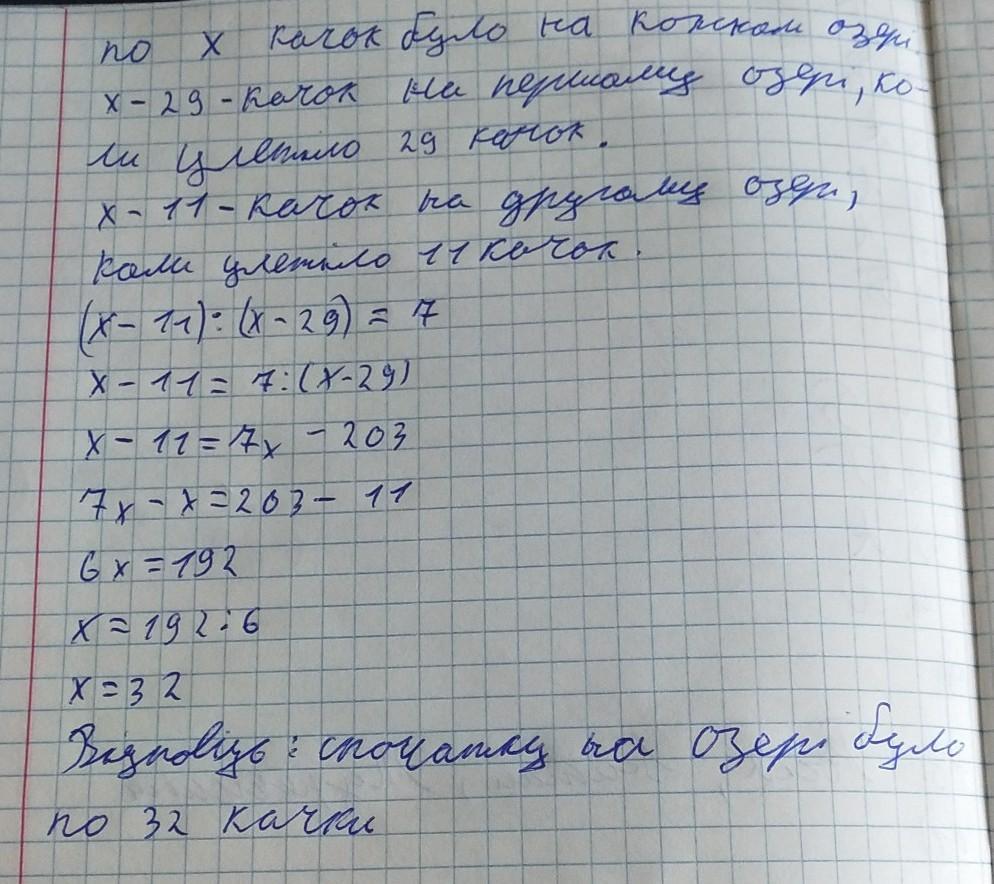 по х качок було на кожном озері
х - 29 - качок на першому озері, ко-
ли улетіло 29 качок.
х - 11 - качок на другому озері,
коли улетіло 11 качок.
(х - 11) : (х - 29) = 7
х - 11 = 7 : (х - 29)
х - 11 = 7х - 203
7х - х = 203 - 11
6х = 192
х = 192 : 6
х = 32
Відповідь : спочатку на озері було
по 32 качки